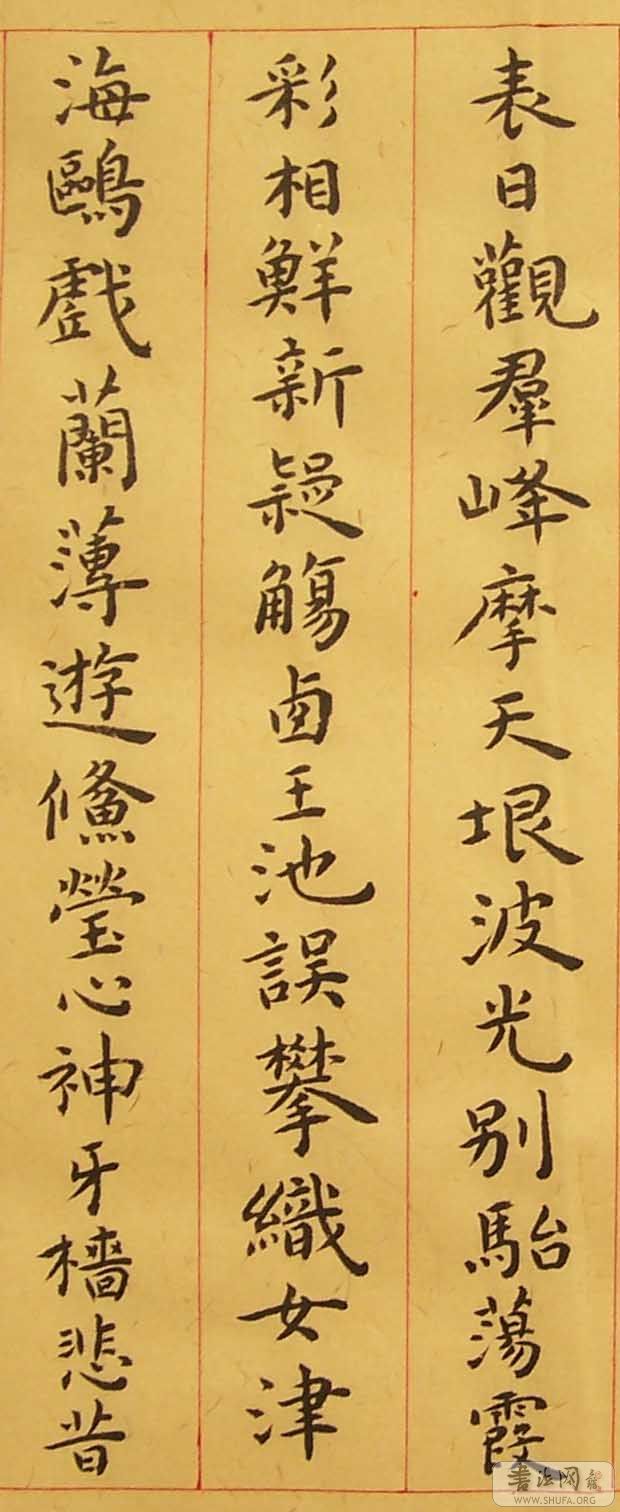 表日觀羣峰摩天垠波光別駘蕩霞
彩相鮮新疑觴卤王池誤攀織女津
海鷗戲蘭薄遊鯈瑩心神牙檣悲昔
書法网
WWW.SHUFA.ORG